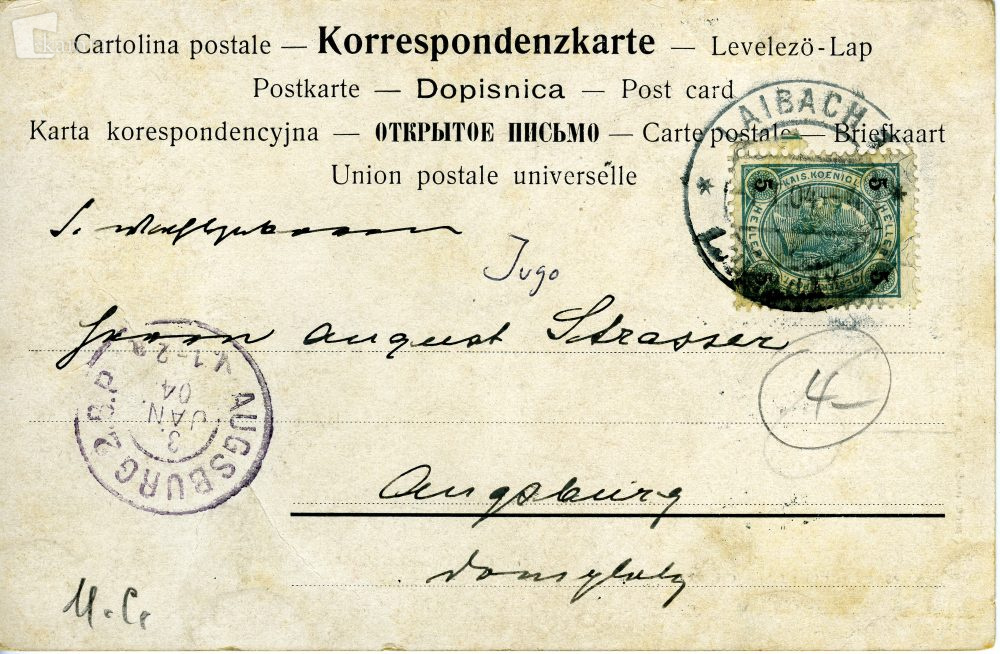 Cartolina postale — Korrespondenzkarte — Levelező-Lap
Postkarte — Dopisnica — Post card
Karta korespondencyjna — ОТКРЫТОЕ ПИСЬМО — Carte postale — Briefkaart
Union postale universelle
LAIBACH
5 KAIS. KOENIGL. 5
HELLER HELLER
5 5
04
S.
Jugo
Herrn August Strasser
AUGSBURG 2. B.P.
3. JAN. 04.
V. 1-2
4-
Augsburg
Domplatz